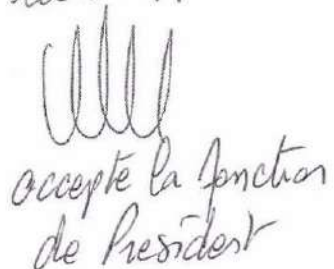 accepte la fonction
de President